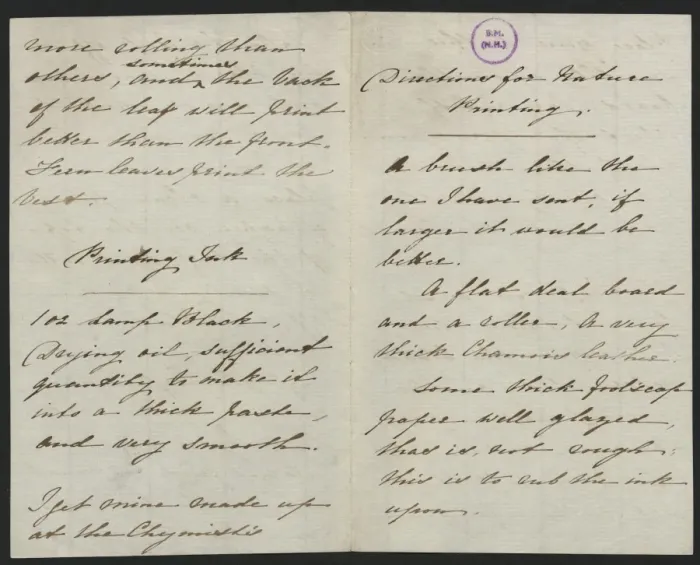 more rolling than
others, and ^ sometimes the back
of the leaf will print
better than the front.
Fern leaves print the
best.
Printing Ink
1 oz Lamp Black,
Drying oil, sufficient
quantity to make it
into a thick paste,
and very smooth.
I get mine made up
at the Chymist's
B.M.
(N.H.)
Directions for Nature
Printing.
A brush like the
one I have sent, if
larger it would be
better.
A flat deal board
and a roller, A very
thick Chamois leather.
Some thick foolscap
paper well glazed,
that is, not rough;
this is to rub the ink
upon.